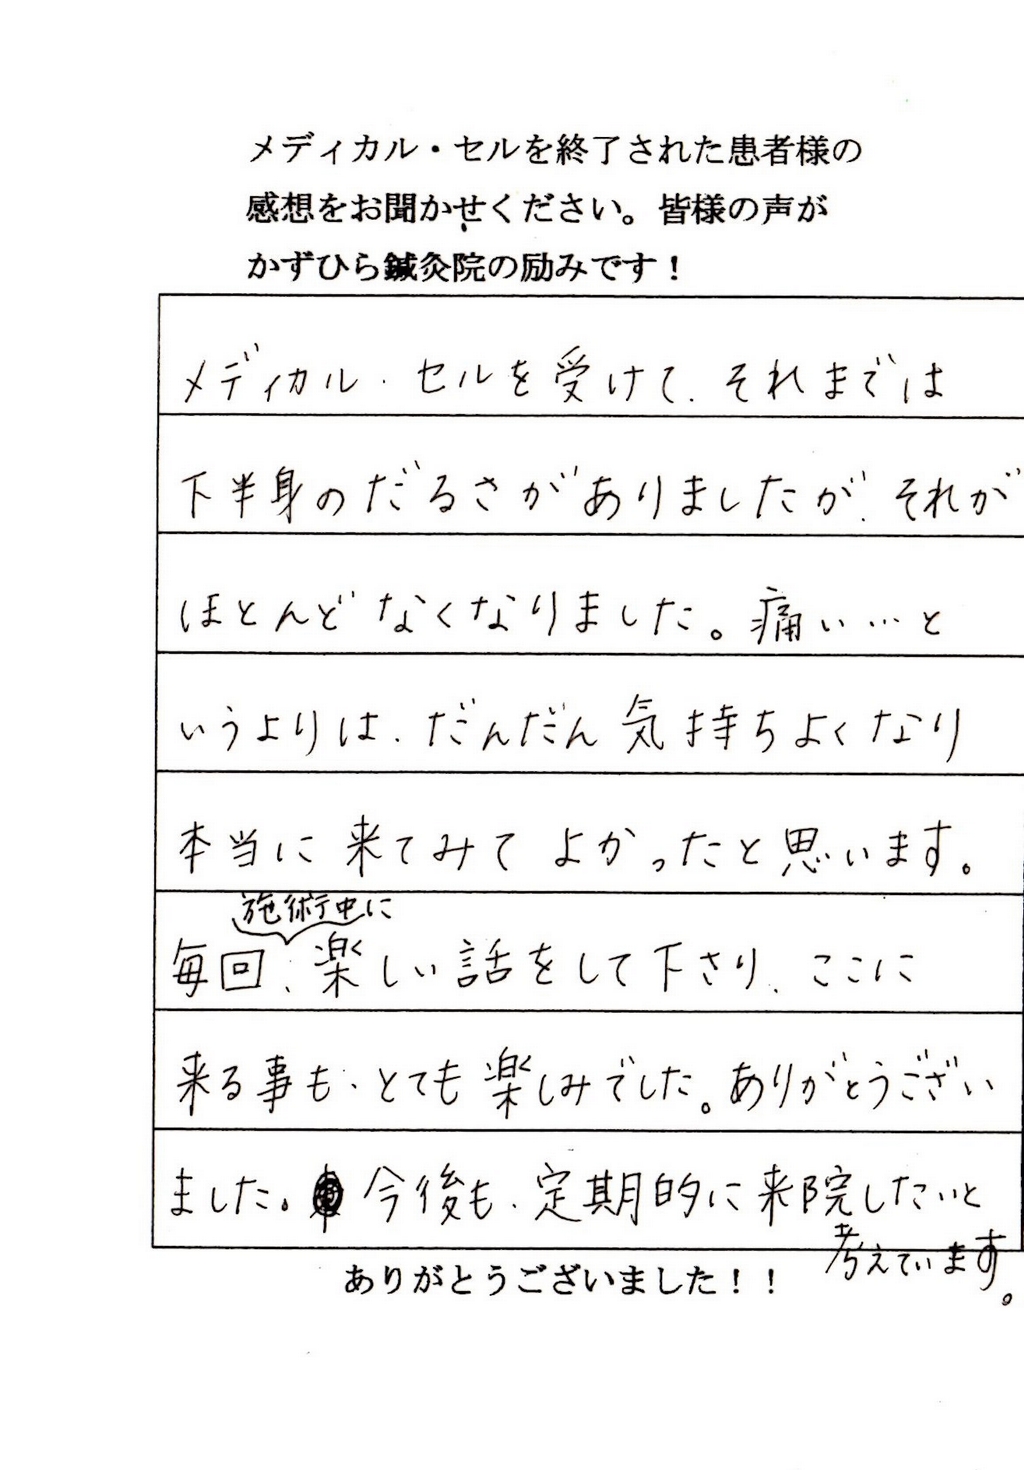 メディカル・セルを終了された患者様の
感想をお聞かせください。皆様の声が
かずひら鍼灸院の励みです!
メディカル・セルを受けて、それまでは
下半身のだるさがありましたが、それが
ほとんどなくなりました。痛い…と
いうよりは、だんだん気持ちよくなり
本当に来てみてよかったと思います。
施術中に
毎回、楽しい話をして下さり、ここに
来る事も、とても楽しみでした。ありがとうござい
ました。今後も、定期的に来院したいと
考えています。
ありがとうございました!!